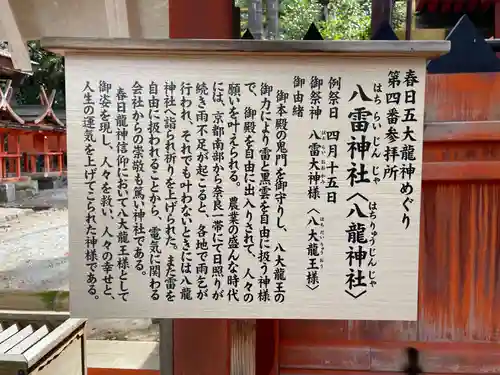 春日五大龍神めぐり
第四番参拝所
八雷神社〈八龍神社〉
はちらいじんじゃ はちりゅうじんじゃ
例祭日 四月十五日
御祭神 八雷大神様〈八大龍王様〉
御由緒
御本殿の鬼門を御守りし、八大龍王の
御力により雷と黒雲を自由に扱う神様
で、御殿を自由に出入りされて、人々の
願いを叶えられる。農業の盛んな時代
には、京都南部から奈良一帯にて日照りが
続き雨不足が起こると、各地で雨乞が
行われ、それでも叶わないときには八龍
神社へ詣り祈りを上げられた。また雷を
自由に扱われることから、電気に関わる
会社からの崇敬も篤い神社である。
春日龍神信仰において八大龍王様として
御姿を現し、人々を救い、人々の幸せと、
人生の運気を上げてこられた神様である。